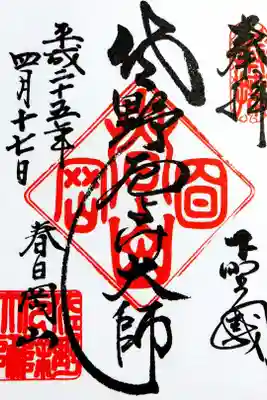 奉拝
下野國
佐野厄よけ大師
平成二十五年
四月十七日
春日岡山